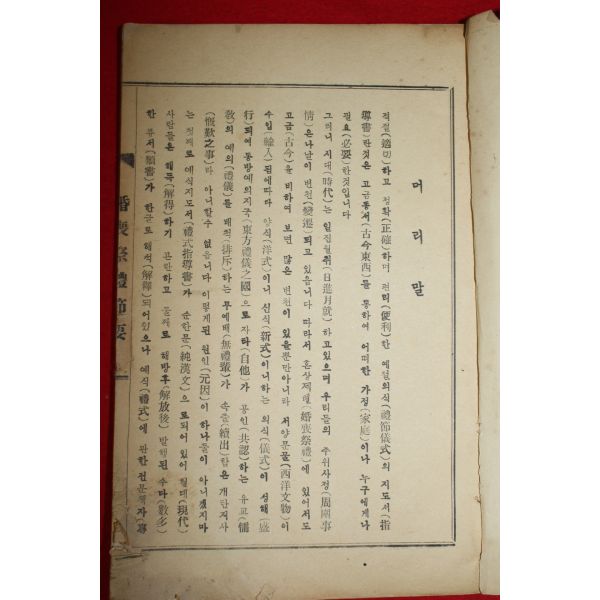 머리말
적절(適切)하고 정확(正確)하며 편리(便利)한 예절의식(禮節儀式)의 지도서(指
導書)란것은 고금동서(古今東西)를 통하여 어떠한 가정(家庭)이나 누구에게나
필요(必要)한것입니다
그러니 시대(時代)는 일진월취(日進月就)하고있으며 우리들의 주위사정(周圍事
情)은나날이 변천(變遷)되고 있읍니다 따라서 혼상제례(婚喪祭禮)에 있어서도
고금(古今)을 비하여 보면 많은 변천이 있을뿐만아니라 서양문물(西洋文物)이
수입(輸入)됨에따라 양식(洋式)이니 신식(新式)이니하는 의식(儀式)이 성행(盛
行)되여 동방예의지국(東方禮儀之國)으로 자타(自他)가 공인(共認)하는 유교(儒
敎)의 예의(禮儀)를 배척(排斥)하는 무예배(無禮輩)가 속출(續出)함은 개탄지사
(慨歎之事)라 아니할수 없읍니다 이렇게된 원인(元因)이 하나둘이 아니겠지마
는 첫째로 예식지도서(禮式指導書)가 순한문(純漢文)으로되어있어 현대(現代)
사람들은 해득(解得)하기 곤란하고 둘째로 해방후(解放後) 발행된 수다(數多)
한 류서(類書)가 한글로 해석(解釋)되어있으나 예식(禮式)에 관한전문학자(專
婚喪祭禮節要